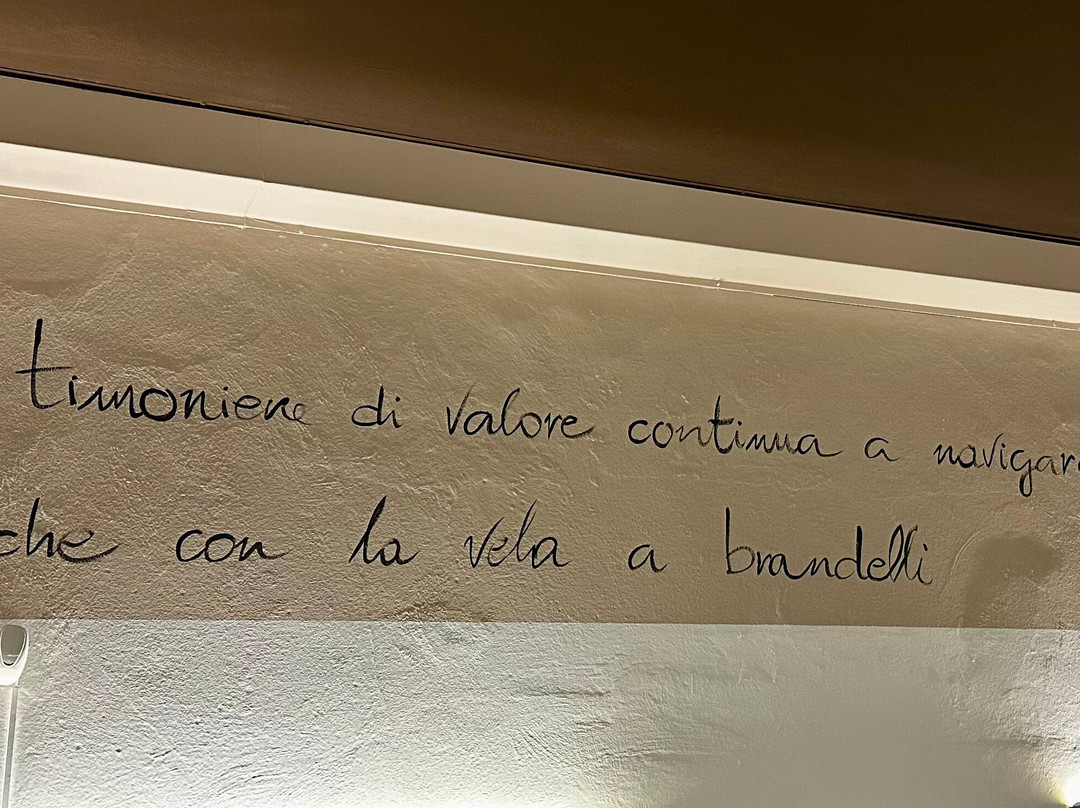 timoniere di valore continua a navigare
che con la vela a brandelli